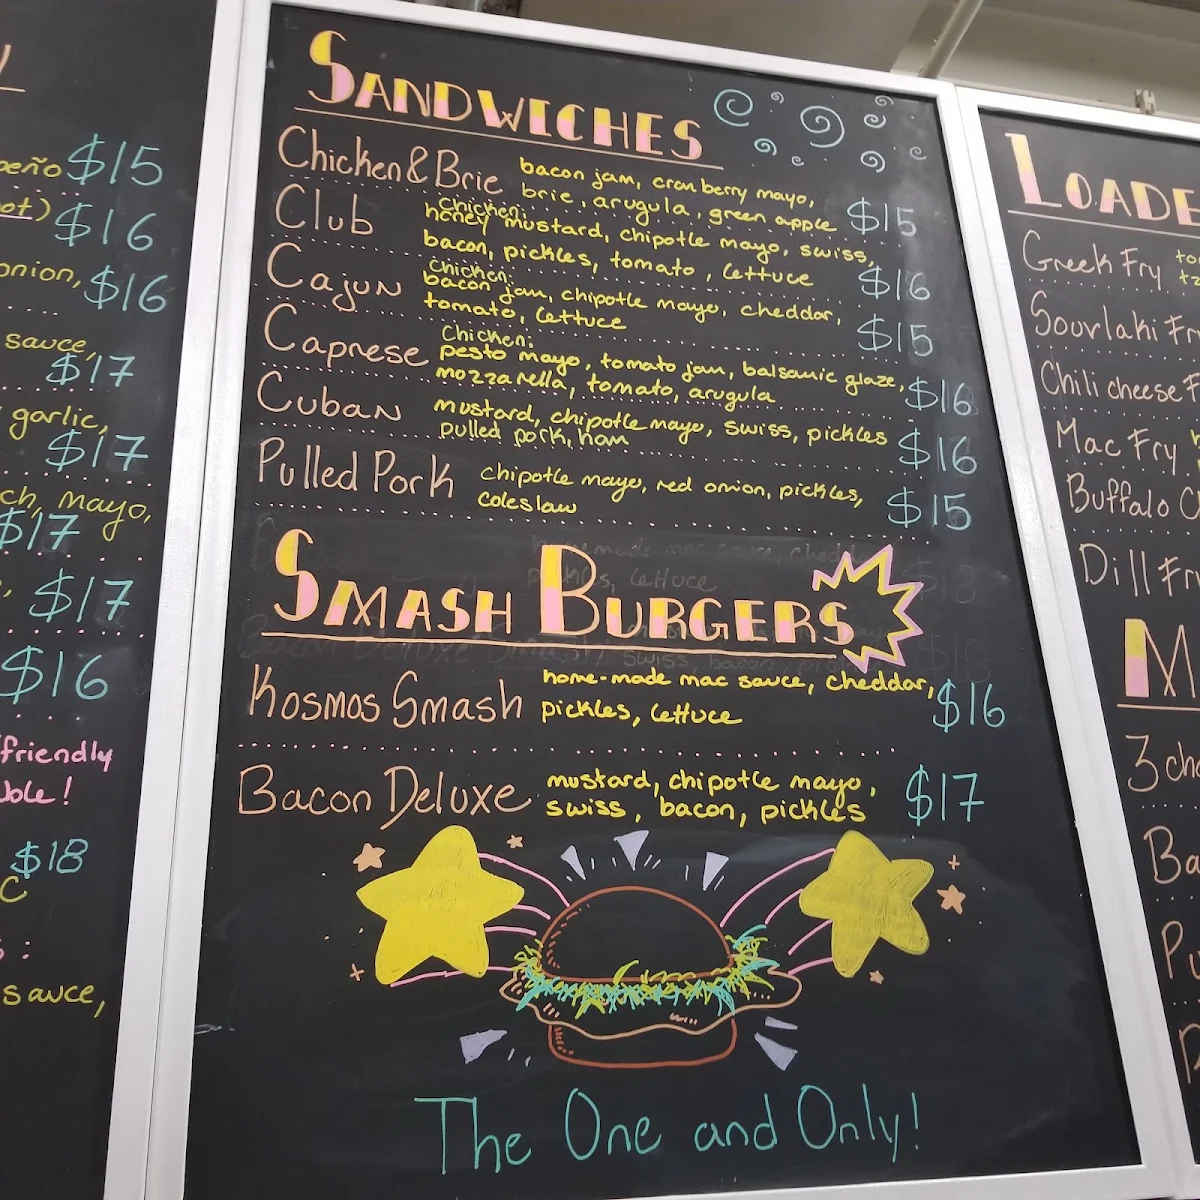 $15
$16
onion, $16
sauce,
$17
garlic,
$17
mayo,
$17
$17
$16
friendly
$18
sauce,
SANDWICHES
Chicken & Brie bacon jam, cranberry mayo,
brie, arugula, green apple $15
Club Chicken:
honey mustard, chipotle mayo, swiss,
bacon, pickles, tomato, lettuce $16
Cajun Chicken:
bacon jam, chipotle mayo, cheddar,
tomato, lettuce $15
Caprese Chicken:
pesto mayo, tomato jam, balsamic glaze,
mozzarella, tomato, arugula $16
Cuban mustard, chipotle mayo, swiss, pickles
pulled pork, ham $16
Pulled Pork chipotle mayo, red onion, pickles,
coleslaw $15
SMASH BURGERS
Kosmos Smash home-made mac sauce, cheddar,
pickles, lettuce $16
Bacon Deluxe mustard, chipotle mayo,
swiss, bacon, pickles $17
The One and Only!
LOADE
Greek Fry
Souvlaki Fr
Chili cheese F
Mac Fry
Buffalo C
Dill Fry
M
3 ch
Ba
Pu